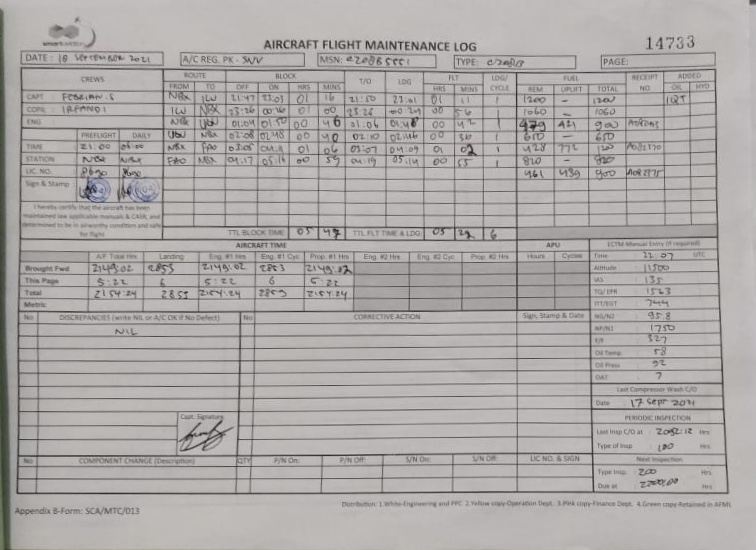 smartaviation
AIRCRAFT FLIGHT MAINTENANCE LOG
14733
DATE: 18 SEPTEMBER 2021 A/C REG. PK - SNV MSN: C208B5551 TYPE: C208B PAGE:
CREWS ROUTE BLOCK T/O LDG FLT LDG/CYCLE FUEL RECEIPT NO. ADDED
FROM TO OFF ON HRS MINS HRS MINS REM UPLIFT TOTAL OIL HYD
CAPT: FEBRIAN.S NBX ILW 21:47 23:03 01 16 21:50 23:01 01 11 1 1200 - 1200 1QT
COPIL: IRFANDI ILW NBX 23:26 00:26 01 00 23:28 00:24 00 56 1 1060 - 1060
ENG: NBX 01:04 01:50 00 46 01:06 01:48 00 42 1 479 421 900
PREFLIGHT DAILY NBX 02:08 02:48 00 40 02:10 02:46 00 36 1 650 - 650
TIME 21:00 06:00 NBX FAO 01 06 03:07 04:09 01 02 1 428 772
STATION NBX NBX FAO NBX 04:17 05:16 00 59 04:19 05:14 00 55 1 820 - 820
LIC NO. 461 439 900
Sign & Stamp
I hereby certify that the aircraft has been
maintained iaw applicable manuals & CASR, and
determined to be in airworthy condition and safe
for flight.
TTL BLOCK TIME 05 47 TTL FLT TIME & LDG 05 22 6
AIRCRAFT TIME APU ECTM Manual Entry (if required)
A/F Total Hrs Landing Eng. #1 Hrs Eng. #1 Cyc Prop. #1 Hrs Eng. #2 Hrs Eng. #2 Cyc Prop. #2 Hrs Hours Cycles Time 22.07 UTC
Brought Fwd 2149:02 2853 2149:02 2853 2149:02 Altitude 11500
This Page 5:22 6 5:22 6 5:22 IAS 135
Total 2154:24 2859 2154:24 2859 2154:24 TQ/EPR 1563
Metric ITT/EGT 744
No DISCREPANCIES (write NIL or A/C OK if No Defect) No CORRECTIVE ACTION Sign, Stamp & Date NG/N2 95.8
NIL NP/N1 1750
F/F 327
Oil Temp. 58
Oil Press 92
OAT 7
Last Compressor Wash C/O
Date 17 SEPT 2021
Capt. Signature
PERIODIC INSPECTION
Last Insp C/O at 2092:12 Hrs
Type of Insp 100 Hrs
No COMPONENT CHANGE (Description) QTY P/N On: P/N Off: S/N On: S/N Off: LIC NO. & SIGN Next Inspection
Type Insp. 200 Hrs
Due at 2200:00 Hrs
Distribution: 1.White-Engineering and PPC 2.Yellow copy-Operation Dept. 3.Pink copy-Finance Dept. 4.Green copy-Retained in AFML
Appendix B-Form: SCA/MTC/013